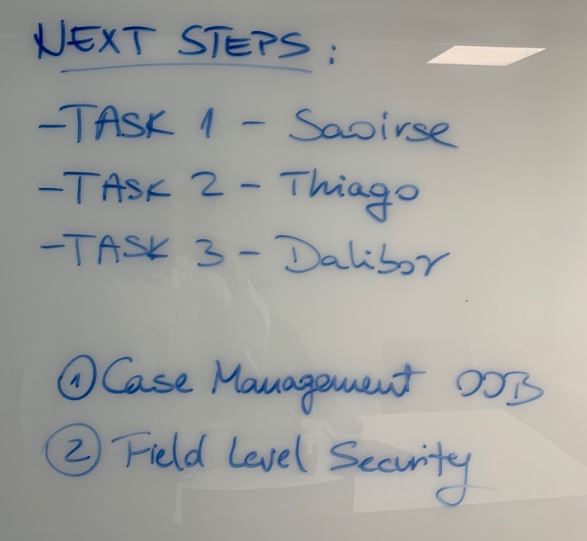 NEXT STEPS:
- TASK 1 - Saoirse
- TASK 2 - Thiago
- TASK 3 - Dalibor
① Case Management OOB
② Field Level Security